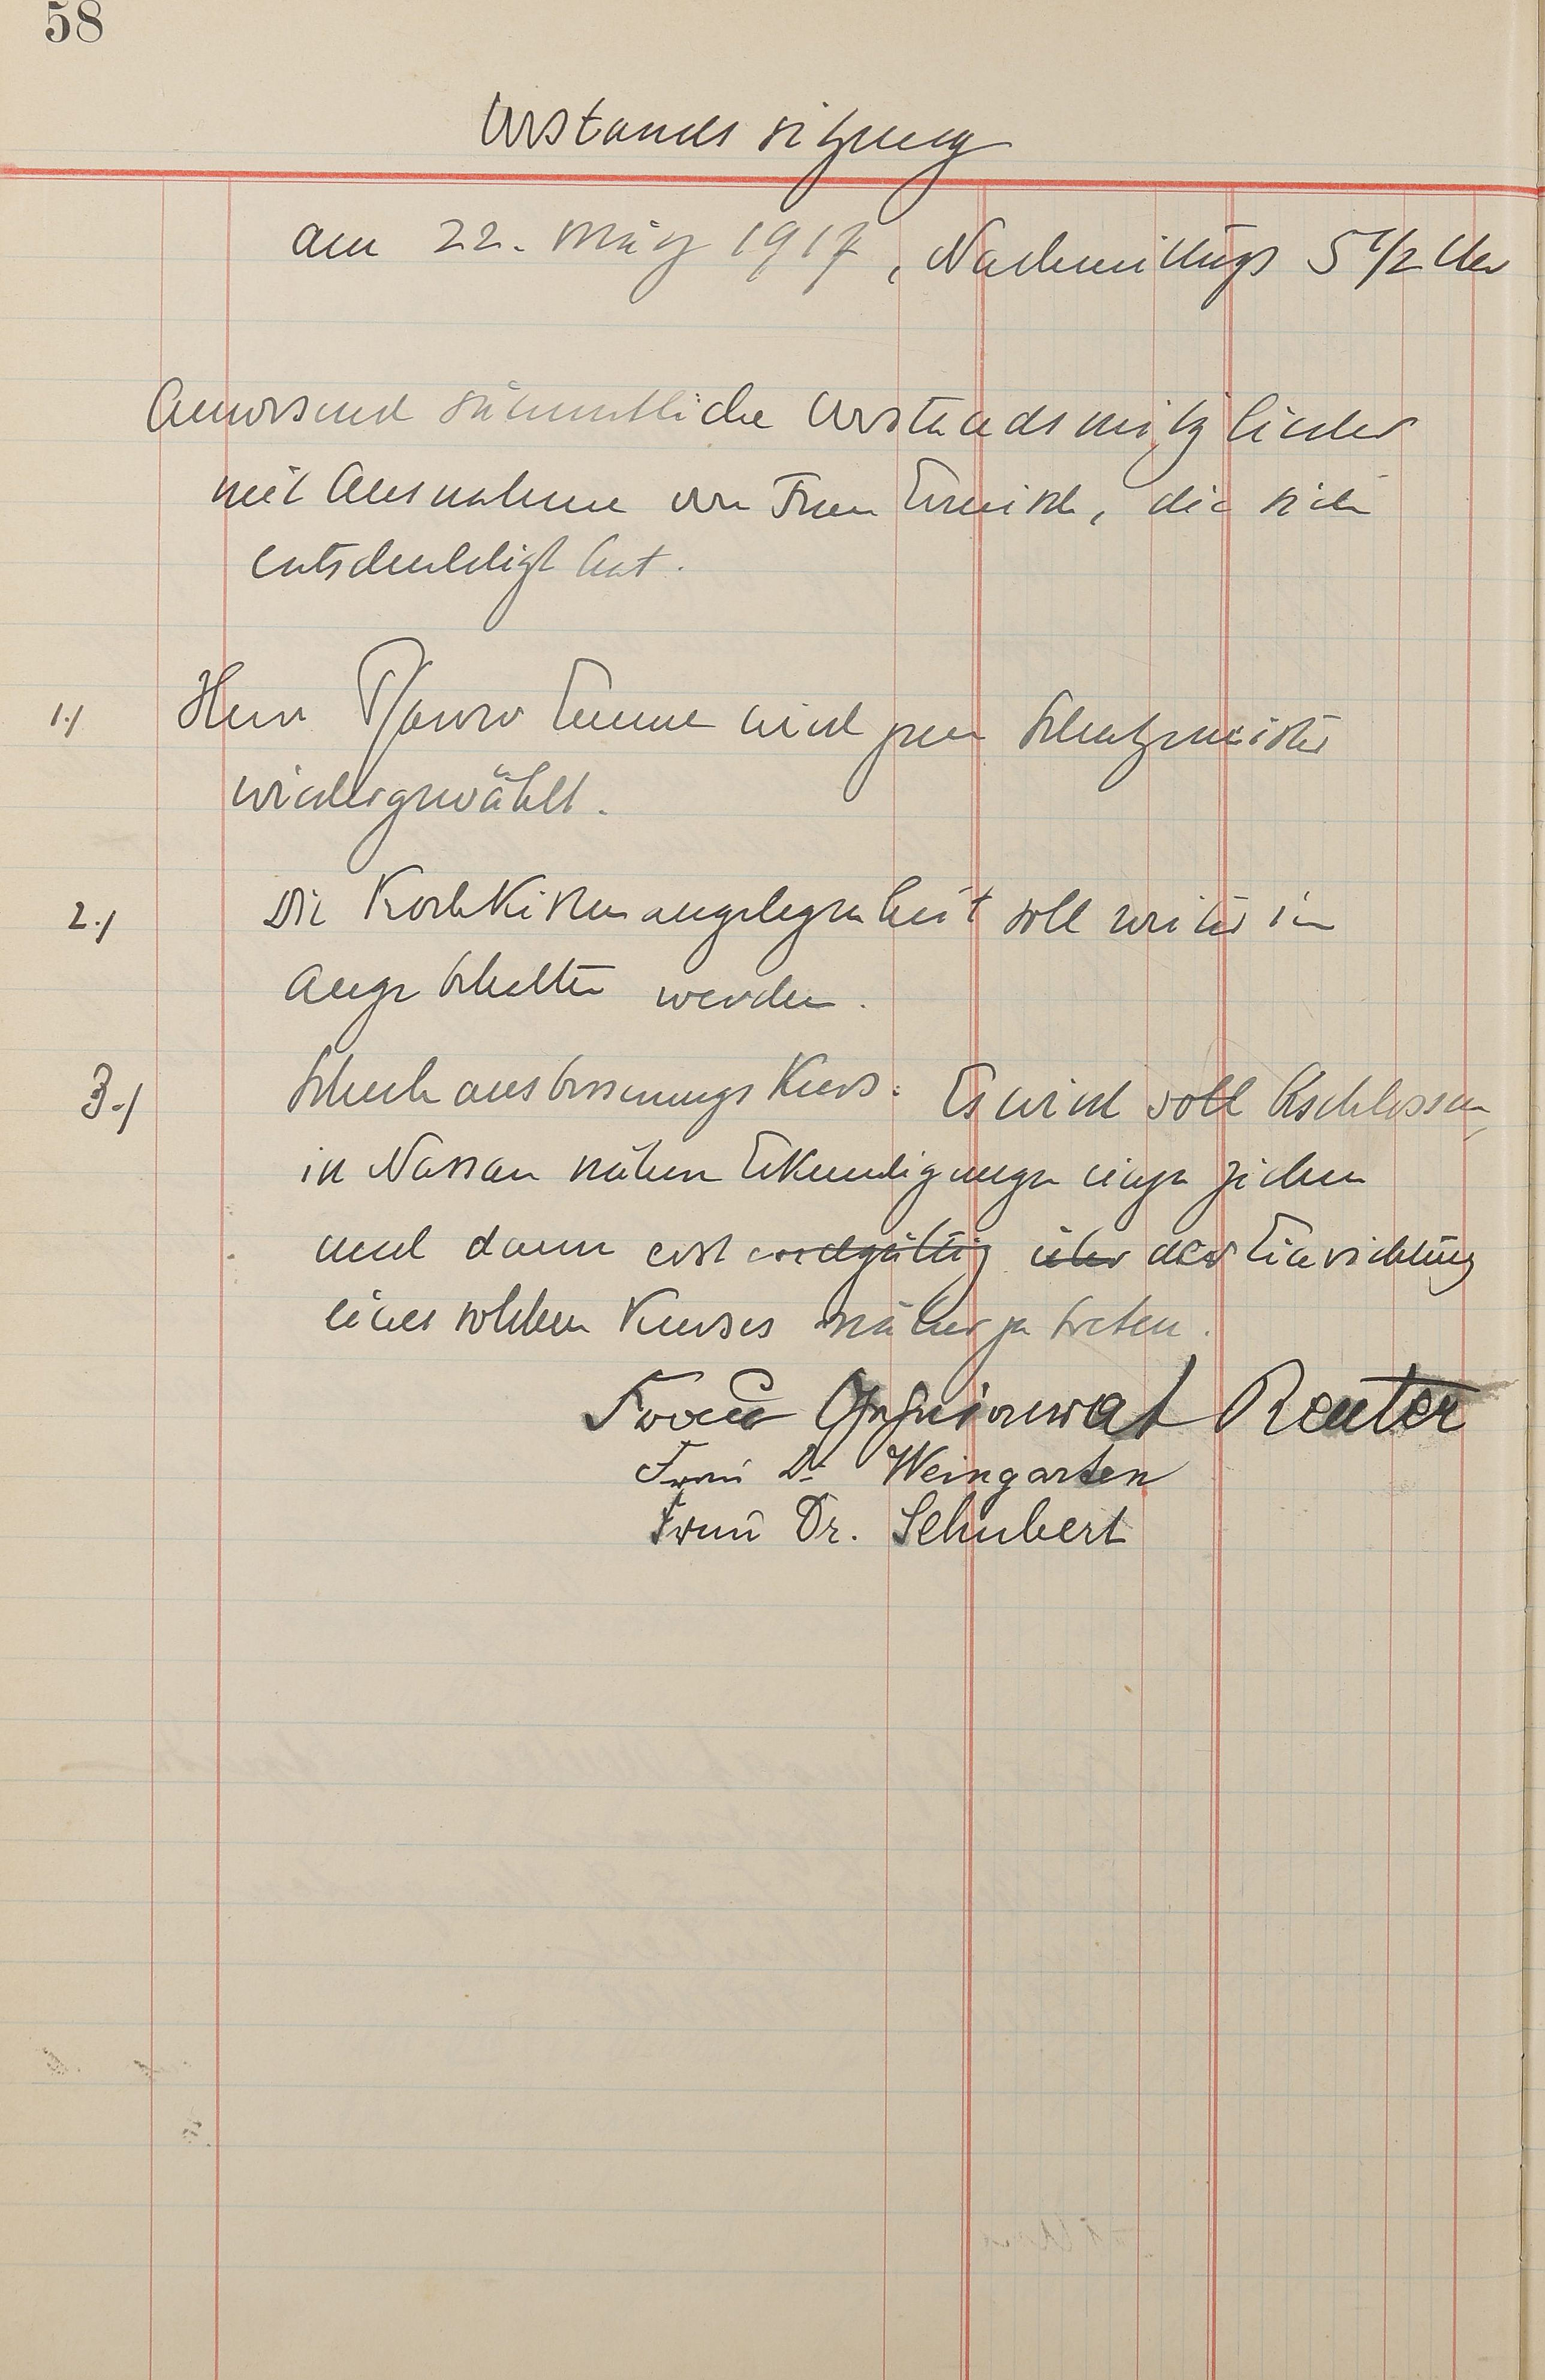 58
Vorstandssitzung
am 22. März 1917, Nachmittags 5 1/2 Uhr
Anwesend sämmtliche Vorstandsmitglieder
mit Ausnahme von Frau, die sich
entschuldigt hat.
1./ Herr Pfarrer Emme wird zum Schatzmeister
wiedergewählt.
2./ Die Kochkistenangelegenheit soll weiter im
Auge behalten werden.
3./ Schuhausbesserungskurs: Es wird soll beschlossen,
in Nassau nähere Erkundigungen einzuziehen
und dann erst endgültig über der Einrichtung
eines solchen Kurses näher zu treten.
Frau Reuter
Frau Dr. Weingarten
Frau Dr. Schubert